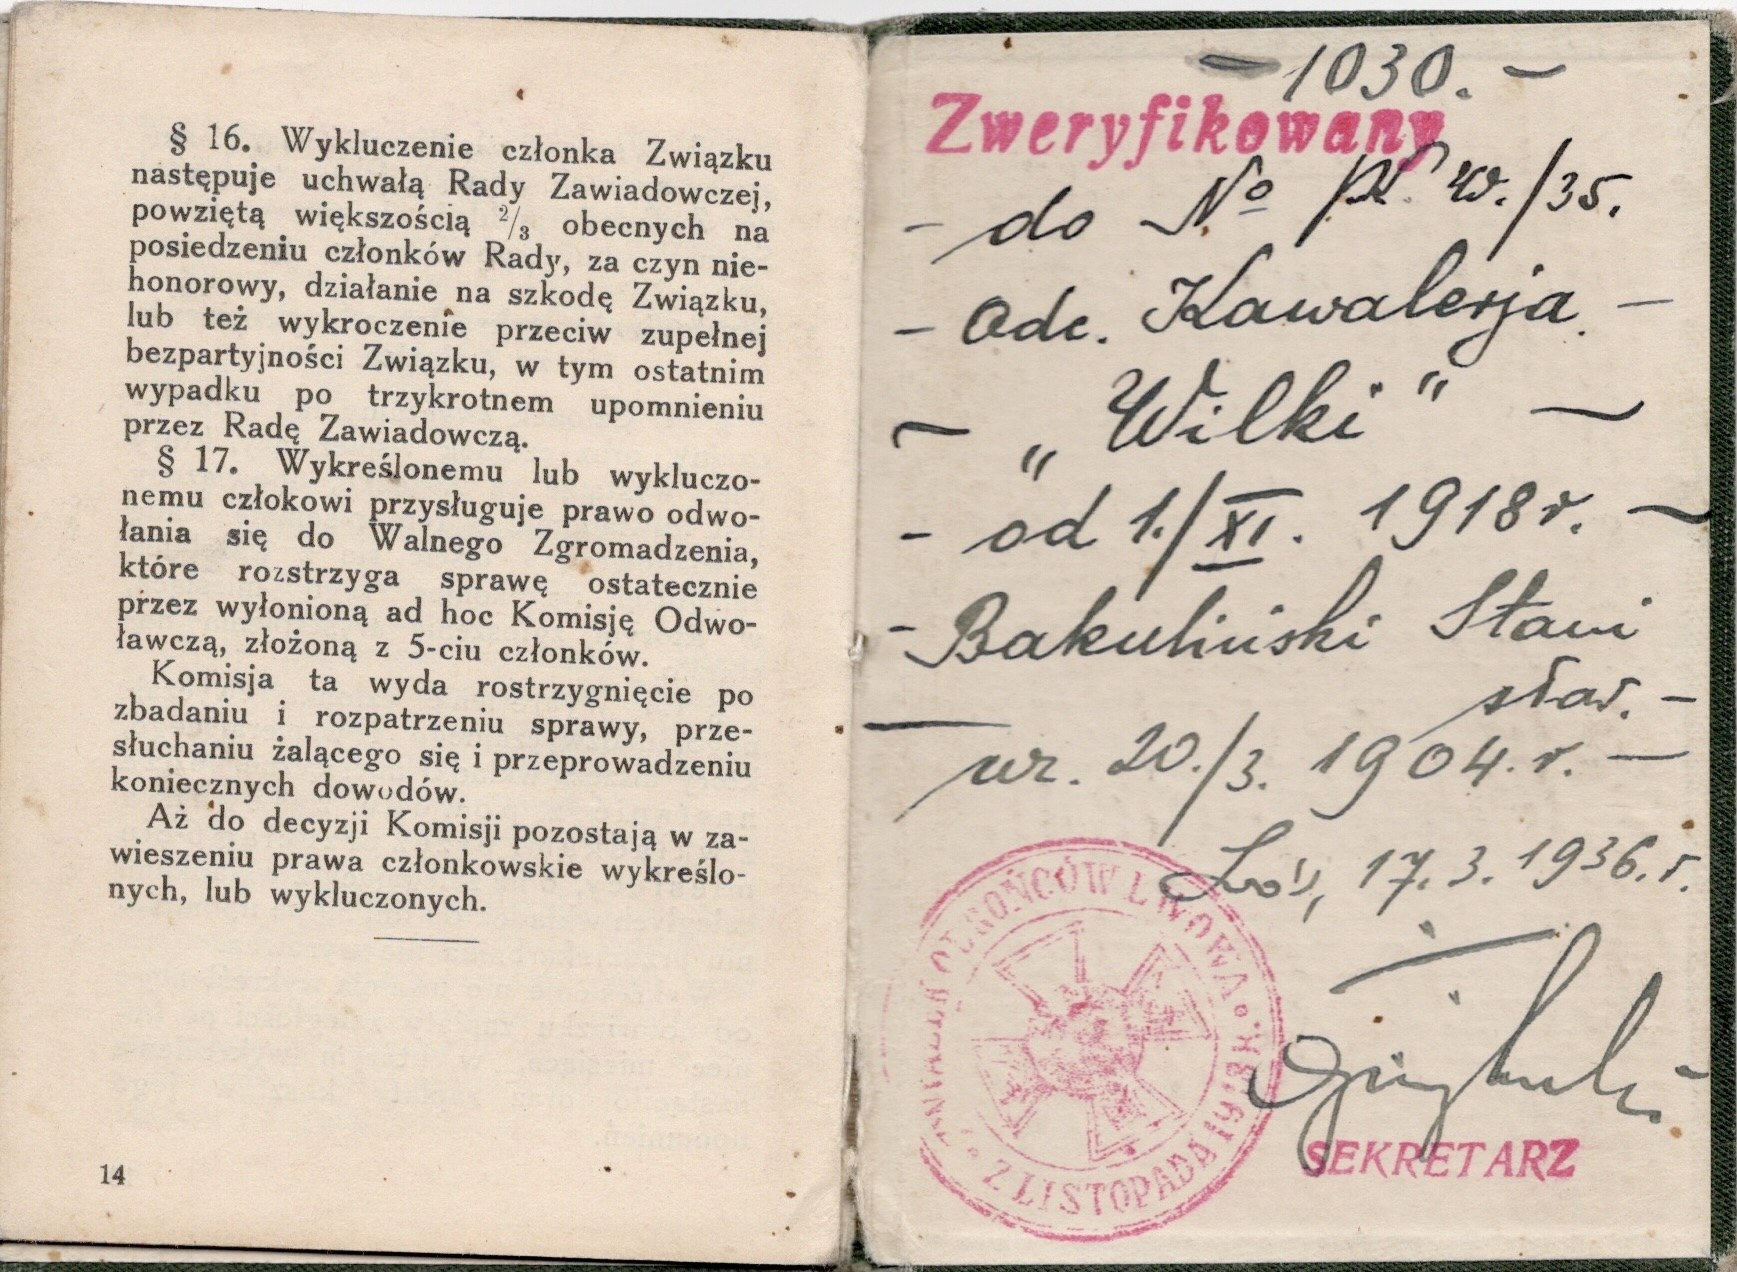 § 16. Wykluczenie członka Związku
następuje uchwałą Rady Zawiadowczej,
powziętą większością 2/3 obecnych na
posiedzeniu członków Rady, za czyn nie-
honorowy, działanie na szkodę Związku,
lub też wykroczenie przeciw zupełnej
bezpartyjności Związku, w tym ostatnim
wypadku po trzykrotnem upomnieniu
przez Radę Zawiadowczą.
§ 17. Wykreślonemu lub wykluczo-
nemu człokowi przysługuje prawo odwo-
łania się do Walnego Zgromadzenia,
które rozstrzyga sprawę ostatecznie
przez wyłonioną ad hoc Komisję Odwo-
ławczą, złożoną z 5-ciu członków.
Komisja ta wyda rostrzygnięcie po
zbadaniu i rozpatrzeniu sprawy, prze-
słuchaniu żalącego się i przeprowadzeniu
koniecznych dowodów.
Aż do decyzji Komisji pozostają w za-
wieszeniu prawa członkowskie wykreślo-
nych, lub wykluczonych.
14
- 1030. -
Zweryfikowany
- do No W./35.
- Odc. Kawalerja -
- „Wilki" -
- od 1./XI. 1918 r. -
- Bakuliński Stani
sław. -
ur. 20./3. 1904. r. -
Lwów, 17. 3. 1936. r.
ZWIĄZEK OBROŃCÓW LWOWA
Z LISTOPADA 1918 R.
SEKRETARZ